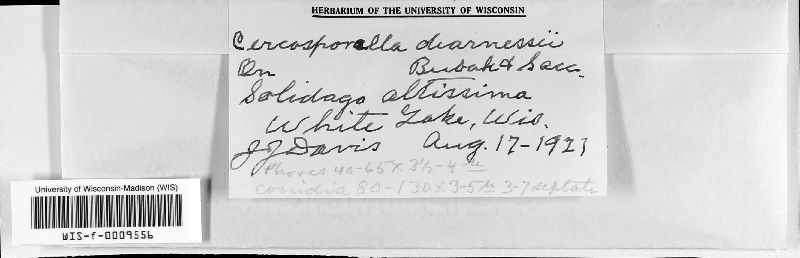 HERBARIUM OF THE UNIVERSITY OF WISCONSIN
Cercosporella dearnessii
On Bubak & Sacc.
Solidago altissima
White Lake, Wis.
JJ Davis Aug. 17-1921
Phores 40-65 x 3½-4
conidia 80-130 x 3-5µ 3-7 septate
University of Wisconsin-Madison (WIS)
WIS-f-0009556